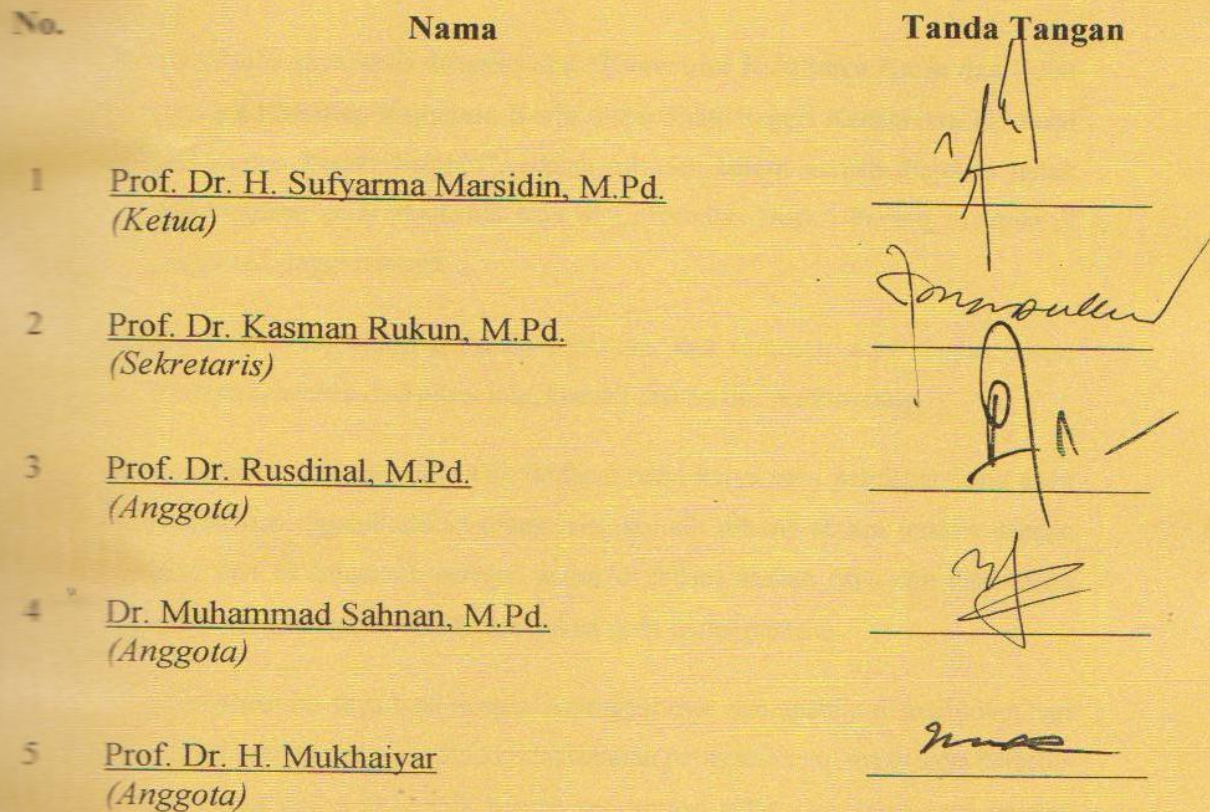 No. Nama Tanda Tangan
1 Prof. Dr. H. Sufyarma Marsidin, M.Pd.
(Ketua)
2 Prof. Dr. Kasman Rukun, M.Pd.
(Sekretaris)
3 Prof. Dr. Rusdinal, M.Pd.
(Anggota)
4 Dr. Muhammad Sahnan, M.Pd.
(Anggota)
5 Prof. Dr. H. Mukhaiyar
(Anggota)